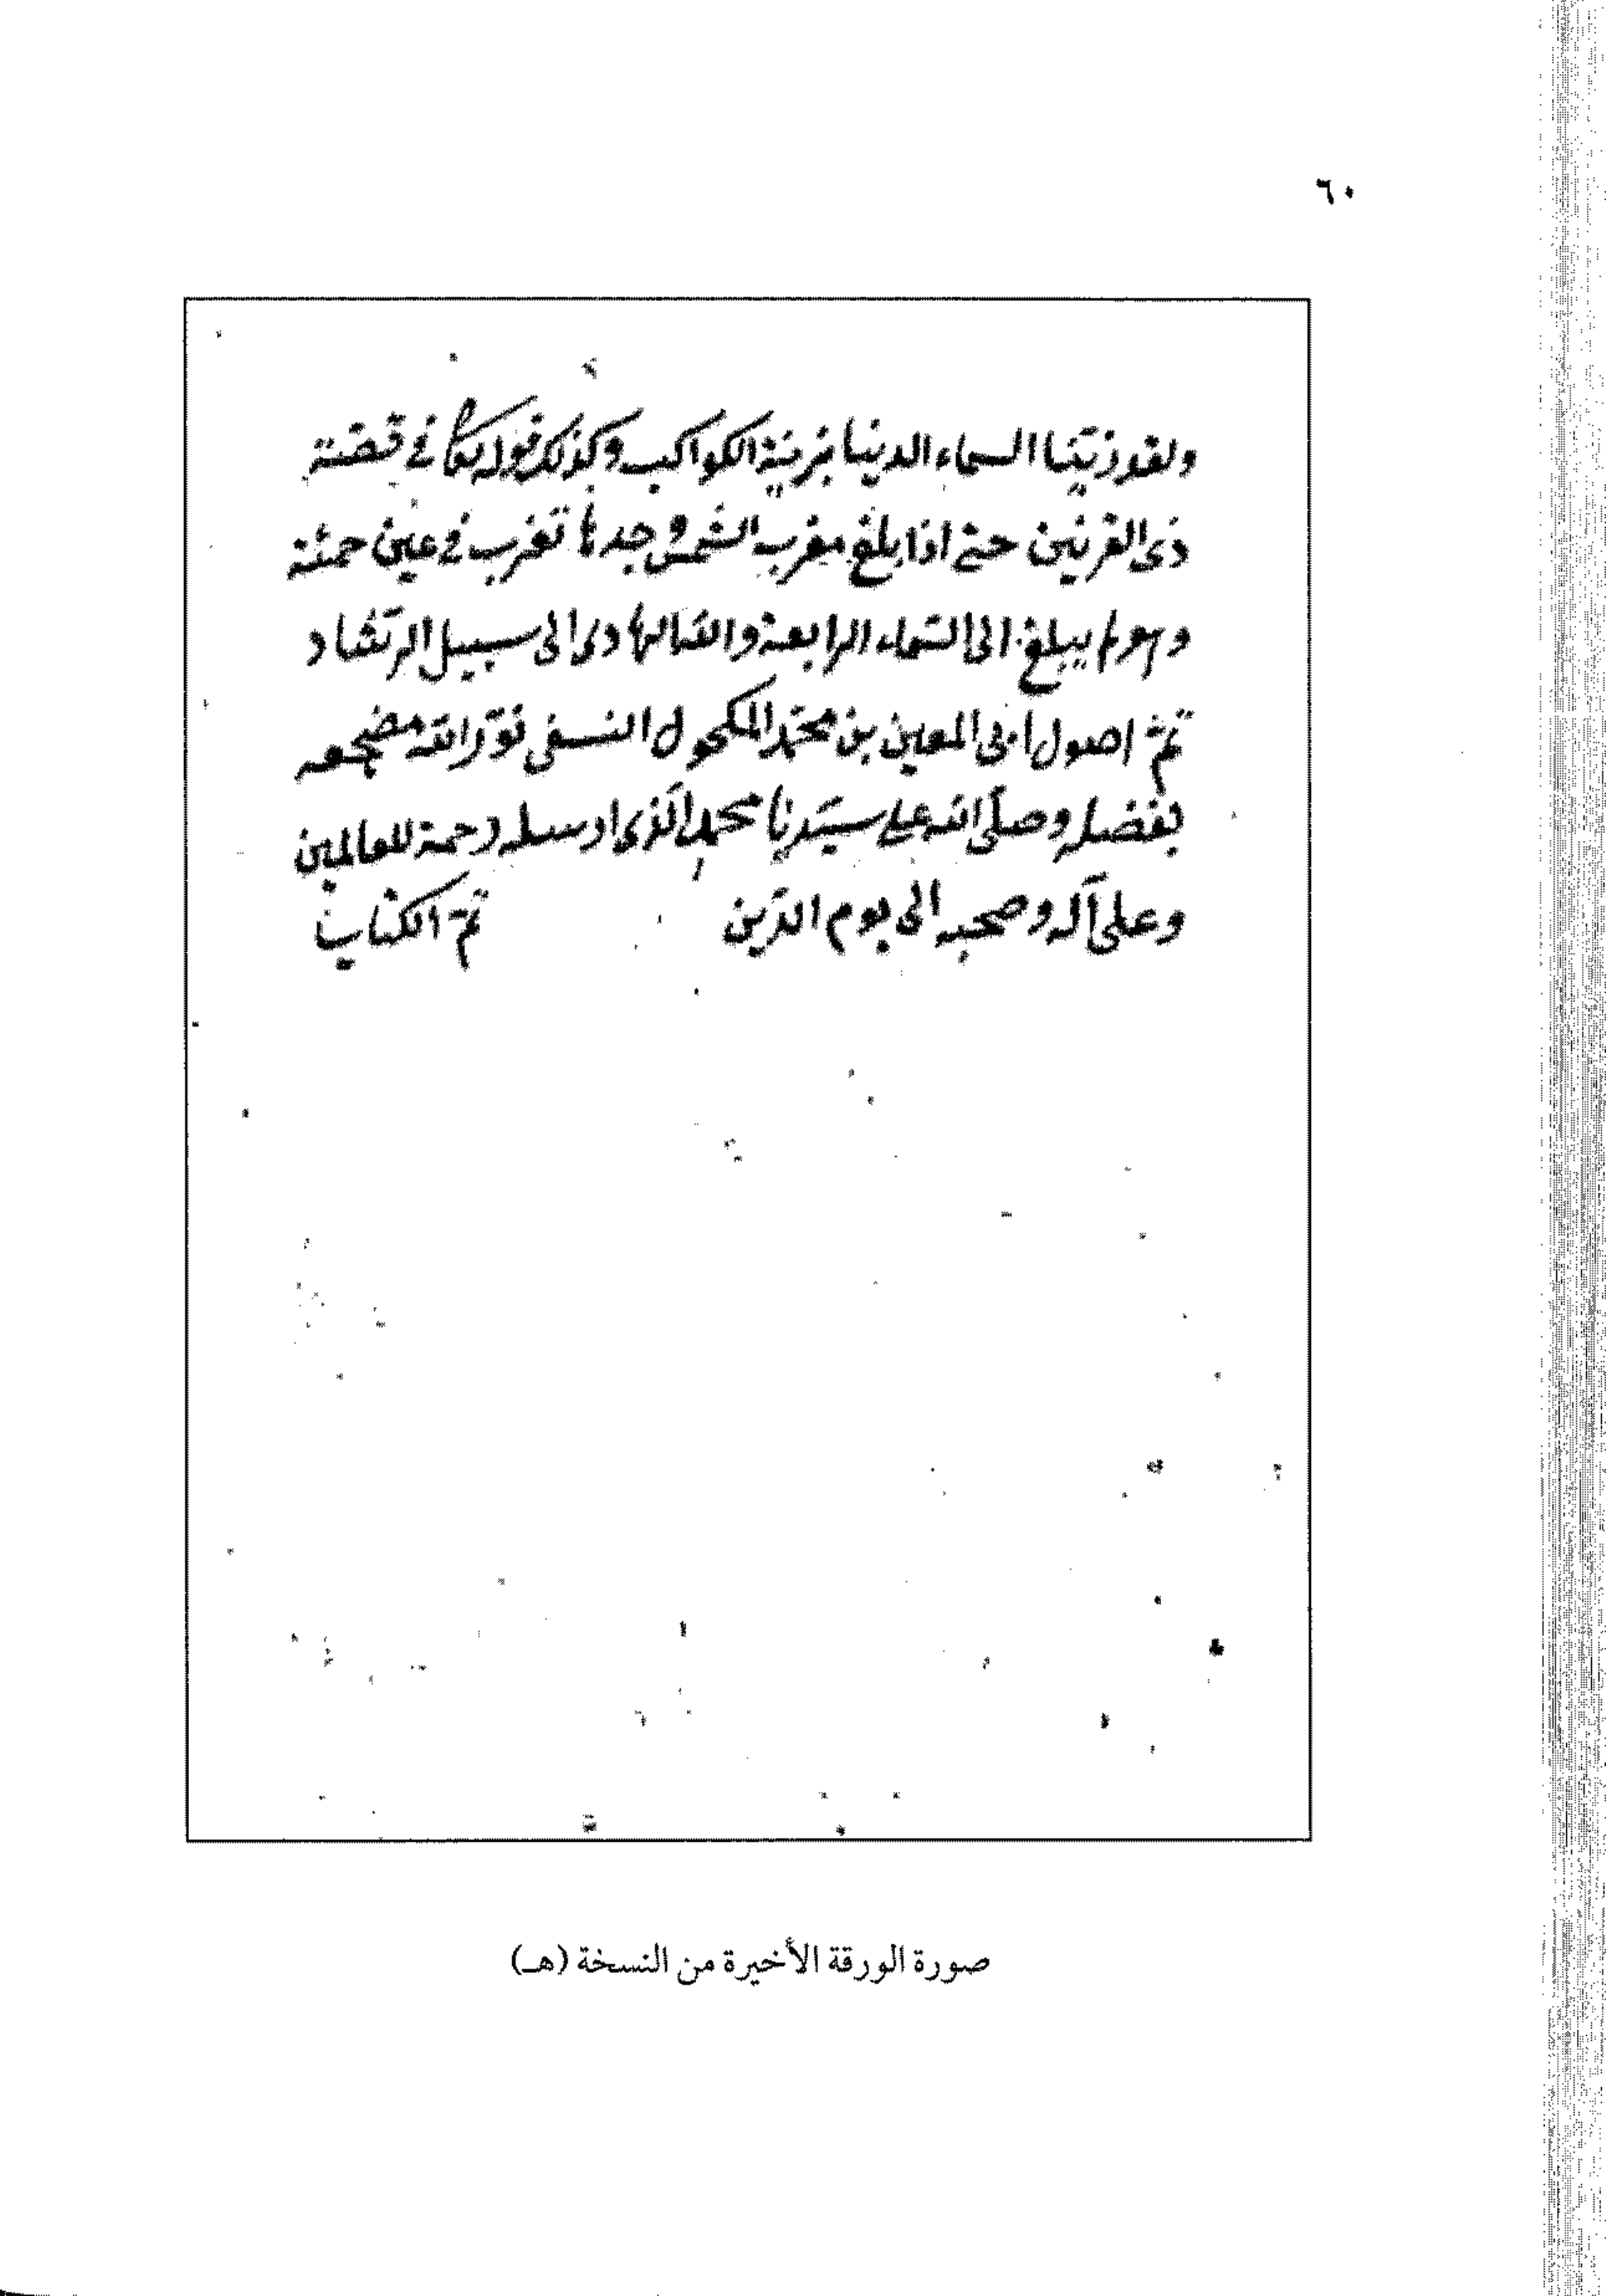 ٦٠
ولقد زيّنا السماء الدنيا بزينة الكواكب وكذلك قوله تعا في قصّته
ذى القرنين حتى اذا بلغ مغرب الشمس وجدها تغرب في عين حمئة
وهو لم يبلغ الى السّماء الرابعة والله الهادى الى سبيل الرّشاد
تمّ اصول ابى المعين بن محمّد المكحول النسفى نوّر الله مضجعه
بفضله وصلّى الله على سيّدنا محمد الّذى ارسله رحمة للعالمين
وعلى آله وصحبه الى يوم الدّين تمّ الكتاب
صورة الورقة الأخيرة من النسخة (هـ)